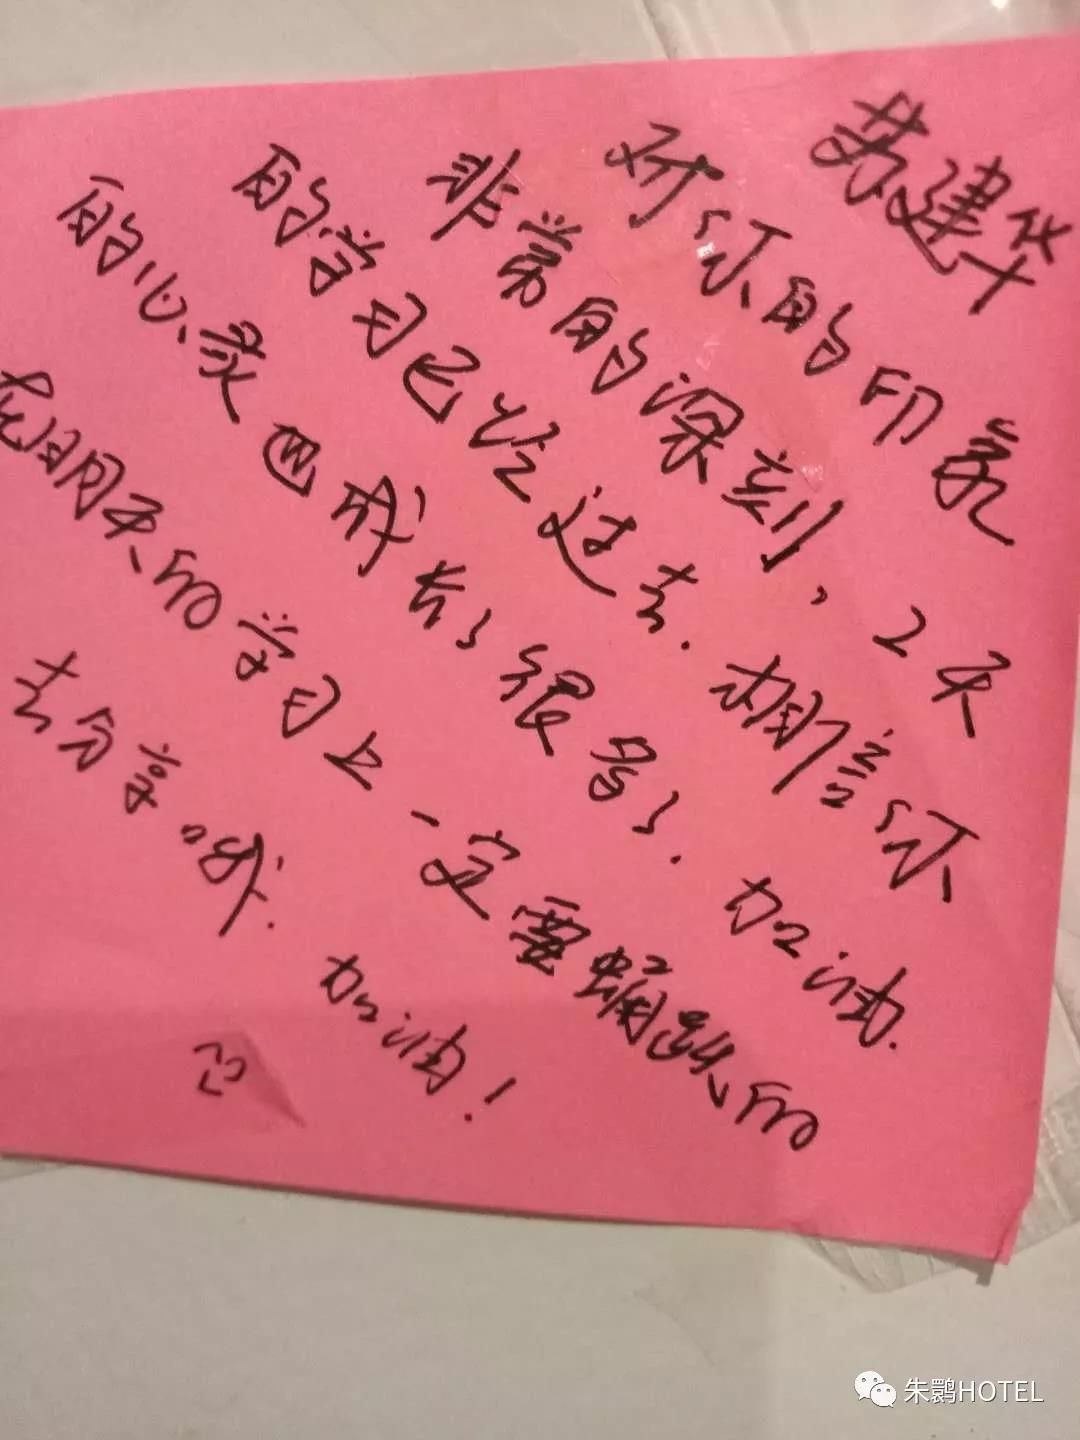 苏建华
对你的印象
非常的深刻，2天
的学习已经过去.相信你
的心灵也成长了很多了.加油.
在明天的学习上一定要踊跃的
去分享哦.加油!
朱鹮HOTEL